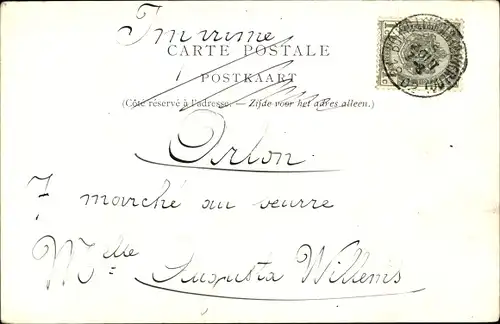 Imprimé
CARTE POSTALE
POSTKAART
(Côté réservé à l'adresse. — Zijde voor het adres alleen.)
Arlon
7 marché au beurre
Melle Augusta Willems